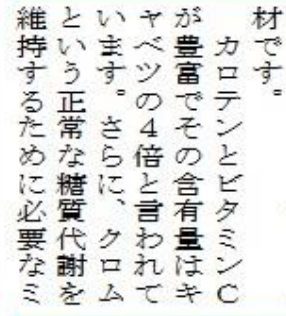 材です。
　カロテンとビタミンC
が豊富でその含有量はキ
ャベツの4倍と言われて
います。さらに、クロム
という正常な糖質代謝を
維持するために必要なミ